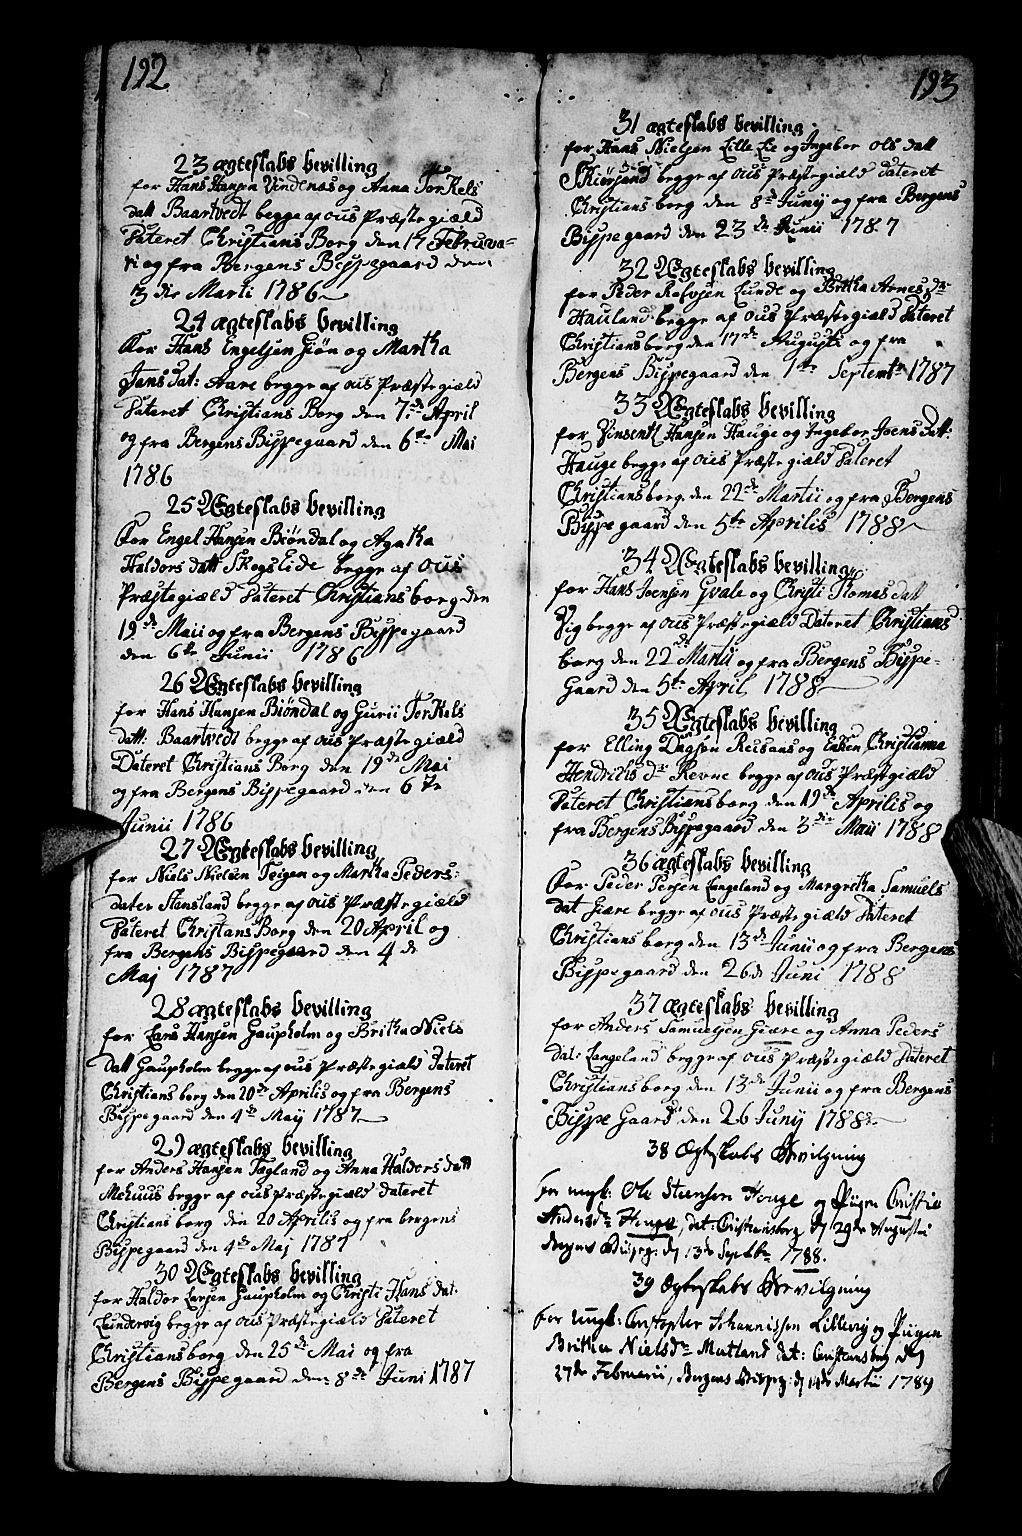 192
23 ægteskabs bevilling
for Hans Hansen Vindenæs og Anna Torkels
datt Baartvedt begge af ous Præstegiæld
Dateret Christians Borg den 17 Februva-
ri og fra Bergens Bispegaard den
3 die Marti 1786
24 ægteskabs bevilling
For Hans Engelsen Giøn og Martha
Jens Dat: Aare begge af ous Præstegiæld
Dateret Christians Borg den 7de April
og fra Bergens Bispegaard den 6te Mai
1786
25 Ægteskabs bevilling
For Engel Hansen Biøndal og Agatha
Haldors datt Skogslide begge af ous
Præstegiæld Dateret Christians borg den
19de Maii og fra Bergens Bispegaard
den 6te Junii 1786
26 Ægteskabs bevilling
for Hans Hansen Biøndal og Gurii Torkels
datt: Baartvedt begge af ous Præstegiæld
Dateret Christians Borg den 19de Mai
og fra Bergens Bispegaard den 6te
Junii 1786
27 Ægteskabs bevilling
for Niels Nielsen Teigen og Martha Peders:
dater Stansland begge af ous Præstegiæld
Dateret Christans Borg den 20 April og
fra Bergens Bispegaard den 4 de
Maj 1787
28 ægteskabs bevilling
for Lars Hansen Gaupholm og Britha Niels
datt Gaupholm begge af ous Præstegiæld Dateret
Christians borg den 20de Aprilis og fra Bergens
Bispegaard den 4de Maij 1787
29 ægteskabs bevilling
for Anders Hansen Tægland og Anna Haldors datt
Mehuus begge af ous Præstegiæld dateret
Christians borg den 20 Aprilis og fra bergens
Bispegaard den 4de Maj 1787
30 Ægteskabs bevilling
for Haldor Larsen Gaupholm og Christi Hans dat.
Lundervig begge af ous Præstegiæld Dateret
Christiansborg den 25de Mai og fra
Bergens Bispegaard den 8de Juni 1787
193
31 ægteskabs bevilling
for Hans Nielsen Lille Lie og Ingebor Ols datt
Skiørsand begge af ous Præstegiæld Dateret
Christians borg den 8de Junij og fra Bergens
Bispegaard den 23de Junii 1787
32 Ægteskabs bevilling
for Peder Rolvsen Lunde og Britha Arnes dr
Hauland begge af ous Præstegiæld Dateret
Christiansborg den 17de Augusti og fra
Bergens Bispegaard den 1te Septembr 1787
33 Ægteskabs bevilling
for Vinsentz Hansen Hauge og Ingebor Joens Datt:
Hauge begge af ous Præstegiæld Dateret
Christiansborg den 22de Martii og fra Bergens
Bispegaard den 5te Aprilis 1788
34 Ægteskabs bevilling
for Hans Joensen Qvale og Christi Thomas Dat
Vig begge af ous Præstegiæld Dateret Christians
borg den 22de Martii og fra Bergens Bispe-
Gaard den 5te April 1788
35 Ægteskabs bevilling
for Elling Dagsøn Reisans og Enken Christianna
Hendrichs dr Revne begge af ous Præstegiæld
Dateret Christiansborg den 19de Aprilis og
fra Bergens Bispegaard den 3die Maii 1788
36 ægteskabs bevilling
For Peder Persen Langeland og Margretha Samuels
dat Giære begge af ous Præstegiæld Dateret
Christians borg den 13de Junii og fra Bergens
Bispegaard den 26de Juni 1788
37 ægteskabs bevilling
for Anders Samuelsen Giære og Anna Peders
dat: Langeland begge af ous Præstegiæld Dateret
Christiansborg den 13de Junii og fra Bergens
Bispe Gaard den 26 Junij 1788
38 Ægteskabs Bevilgning
for ungk: Ole Steensen Houge og Pigen Christie
Andersdr Houge, dat: Christiansborg d 29de Augustii
Bergens Bispeg: d 13de Septbr 1788.
39 Ægteskabs Bevilgning
for Ungk: Christopher Johannissen Lillevig og Piigen
Brithe Nielsdr Mætland dat: Christiansborg den
27de Februarii, Bergens Bispeg: d 14de Martii 1789